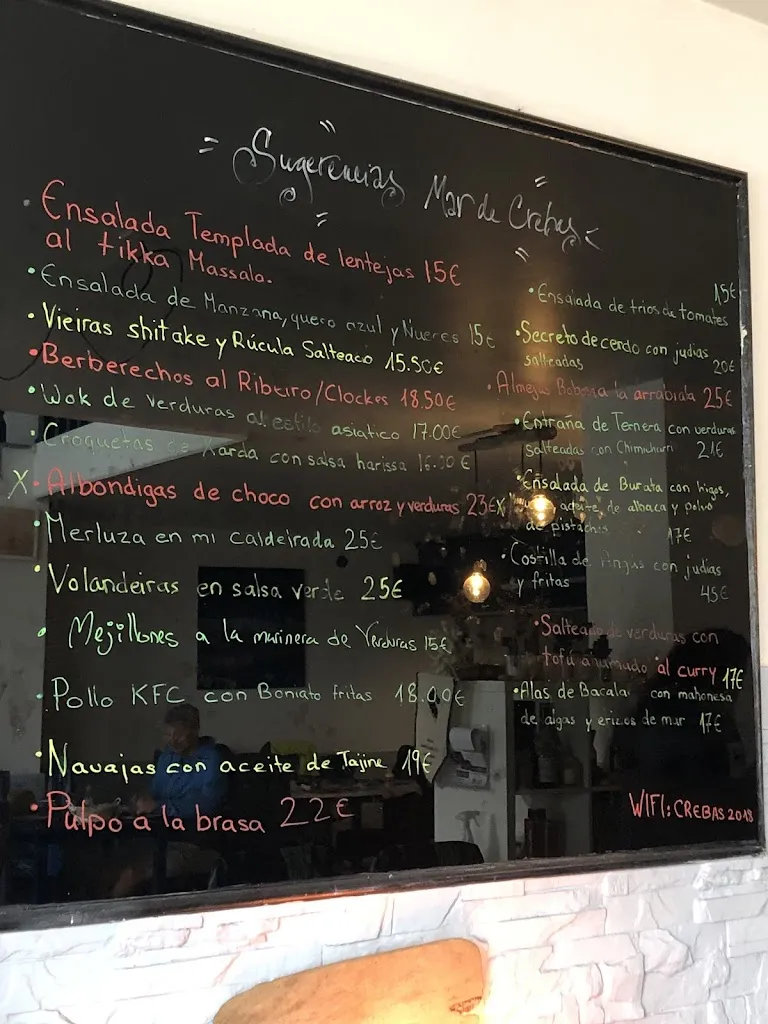 Sugerencias Mar de Crebas
• Ensalada Templada de lentejas 15€
al tikka Massala.
• Ensalada de Manzana, queso azul y Nueces 15€
• Vieiras shitake y Rúcula Salteaco 15.50€
• Berberechos al Ribeiro/Clockes 18.50€
• Wok de verduras al estilo asiatico 17.00€
• Croquetas de con salsa harissa 16.00€
X • Albondigas de choco con arroz y verduras 23€ X
• Merluza en mi caldeirada 25€
• Volandeiras en salsa verde 25€
• Mejillones a la marinera de Verduras 15€
• Pollo KFC con Boniato fritas 18.00€
• Navajas con aceite de Tajine 19€
• Pulpo a la brasa 22€
15€
• Ensalada de trios de tomates
• Secreto de cerdo con judias
salteadas 20€
• Almejas la arrabiata 25€
• Entraña de Ternera con verduras
Salteadas con Chimichurri 21€
• Ensalada de Burata con higos,
aceite de albaca y polvo
de pistachos 17€
• Costilla de Angus con judias
y fritas 45€
• Salteado de verduras con
tofú ahumado al curry 17€
• Alas de Bacalao con mahonesa
de algas y erizos de mar 17€
WIFI: CREBAS 2018